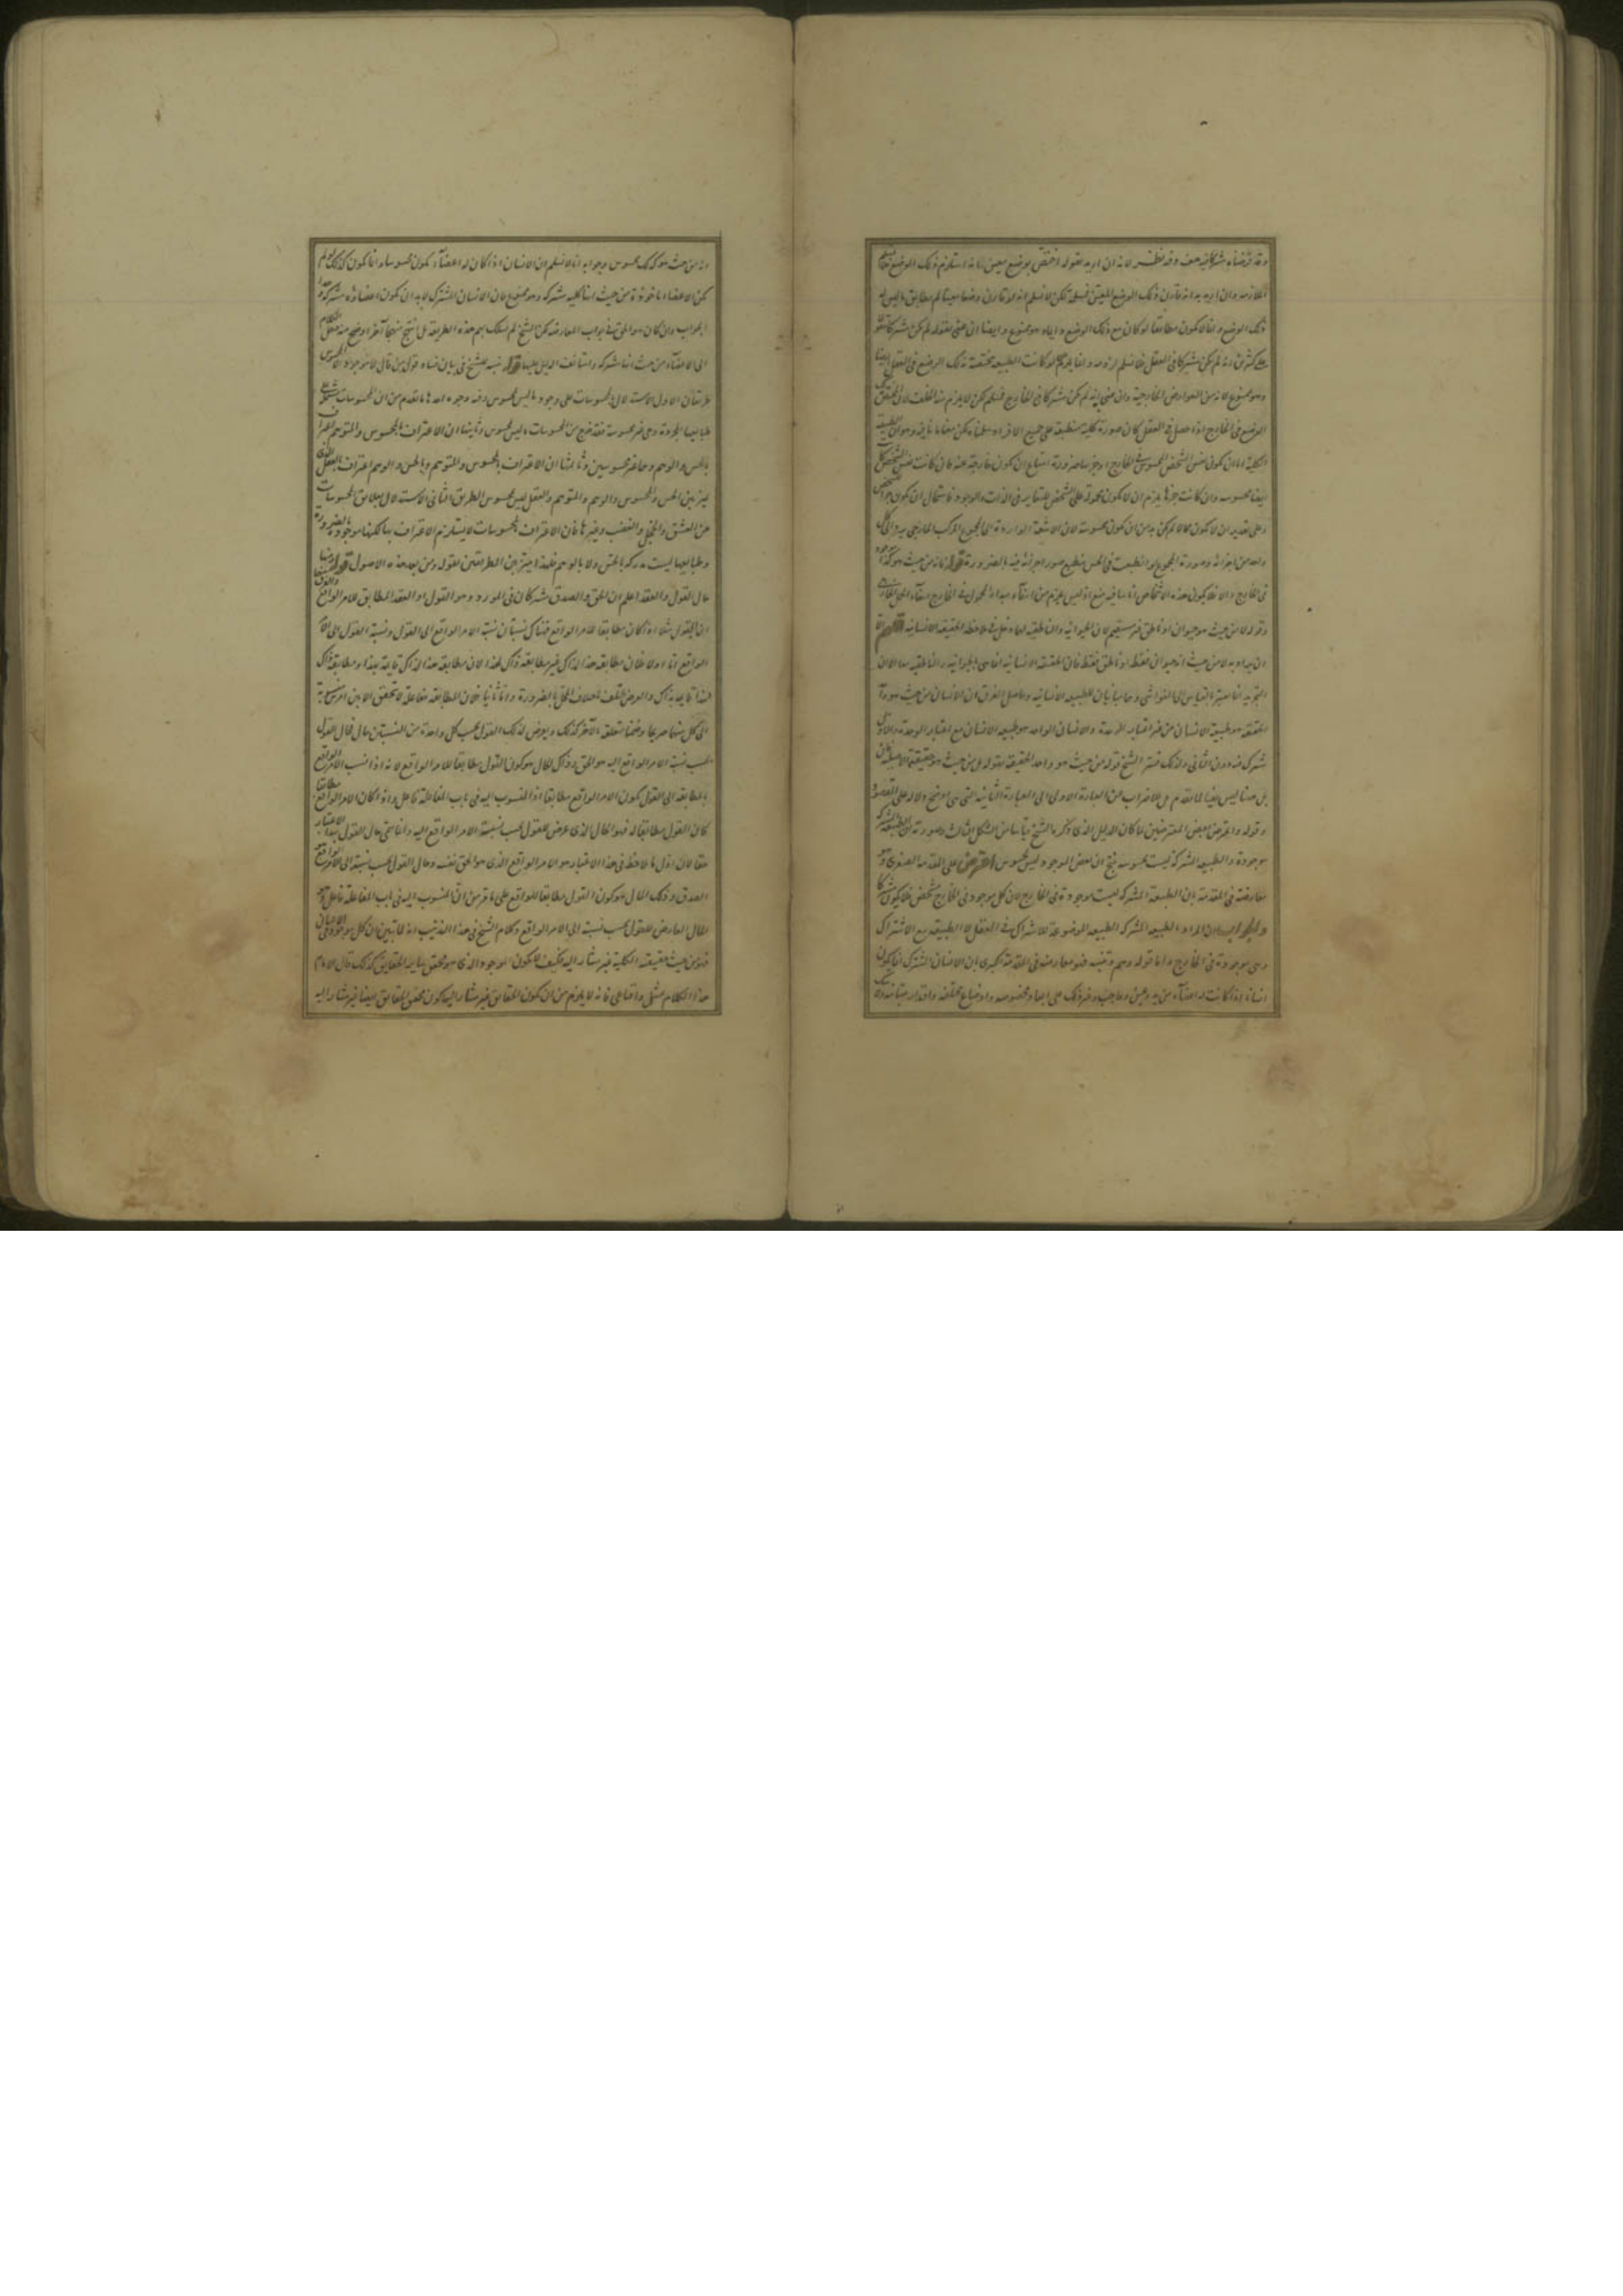 وقد فرضناه مشتركا هف وفيه نظر لانه ان اريد بقوله اختص بوضع معين انه استلزم ذلك الوضع
الملازمة وان اريد به انه قارن ذلك الوضع المعين فمسلم لكن لا نسلم انه لو قارن وضعا معينا لم يطابق ما ليس له
ذلك الوضع وانما لا يكون مطابقا لو كان مع ذلك الوضع واياه هو ممنوع وايضا ان عنى بقوله لم يكن مشتركا
على كثيرين انه لم يكن مشتركا في العقل فلا نسلم لزومه وانما يلزم لو كانت الطبيعة مختصة بذلك الوضع في العقل ايضا
وهو ممنوع لانه من العوارض الخارجية وان عنى به انه لم يكن مشتركا في الخارج فمسلم لكن لا يلزم منه الخلف لان
الوضع في الخارج اذا حصل في العقل كان صورة كلية منطبقة على جميع الافراد سلمناه لكن معنا ما ينافيه وهو ان الطبيعة
الكلية اما ان يكون نفس الشخص المحسوس في الخارج او جزءها ضرورة امتناع ان يكون خارجة عنه فان كانت نفس الشخص
ايضا محسوسة وان كانت جزءها يلزم ان لا يكون محمولة على الشخص لتغايره في الذات والوجود فاستحال ان يكون
وعلى تقدير ان لا يكون محالا لم يكن بد من ان يكون محسوسة لان الاشعة الواردة الى المجموع المركب الخارجي يرد الى كل
واحد من اجزائه وصورة المجموع لو انطبعت في الحس ينطبع صور اجزائه فيه بالضرورة قوله فانه من حيث هو كذا موجود
في الخارج والا فلا يكون هذه الاشخاص اناسا فيه منع اذ ليس يلزم من انتفاء مبدا المحمول في الخارج انتفاء الحمل الخارجي
وقوله لا من حيث هو حيوان او ناطق غير مستقيم لان الحيوانية والناطقية لها دخل في ملاحظة الحقيقة الانسانية اللهم الا
ان يراد به لا من حيث انه حيوان فقط او ناطق فقط فان الحقيقة الانسانية انما هي بالحيوانية والناطقية معا لان
التجريد انما يعتبر بالقياس الى الغواشي وهما ذاتيان للطبيعة الانسانية وحاصل الفرق ان الانسان من حيث هو واحد
الحقيقة هو طبيعة الانسان من غير اعتبار الوحدة والانسان الواحد هو طبيعة الانسان مع اعتبار الوحدة والاول
مشترك فيه دون الثاني ولذلك فسر الشيخ قوله من حيث هو واحد الحقيقة بقوله بل من حيث هو حقيقته الاصلية
بل هذا ليس نفيا لما تقدم بل للاضراب من العبارة الاولى الى العبارة الثانية التي هي اوضح دلالة على المقصود
وقوله واعترض بعض المعترضين لما كان الدليل الذي ذكره الشيخ قياسا من الشكل الثالث وصورته ان الطبيعة المشتركة
موجودة والطبيعة المشتركة ليست محسوسة ينتج ان بعض الموجود ليس بمحسوس اعترض على المقدمة الصغرى وهو
معارضة في المقدمة بان الطبيعة المشتركة ليست موجودة في الخارج لان كل موجود في الخارج مشخص فلا يكون مشتركا
والجواب ان المراد بالطبيعة المشتركة الطبيعة الموضوعة للاشتراك في العقل لا الطبيعة مع الاشتراك
وهي موجودة في الخارج واما قوله وهم وتنبيه فهو معارضة في المقدمة الكبرى بان الانسان المشترك انما يكون
انسانا اذا كانت له اعضاء من يد وعين وحاجب وغير ذلك على ابعاد مخصوصة واوضاع مختلفة واقدار متباينة
انه من حيث هو كذلك محسوس وجوابه انا لا نسلم ان الانسان اذا كان له اعضاء يكون محسوسا وانما يكون كذلك لو لم
يكن الاعضاء ماخوذة من حيث انها كلية مشتركة وهو ممنوع فان الانسان المشترك لابد ان يكون اعضاؤه مشتركة وهذا
الجواب وان كان هو الحق في جواب المعارضة لكن الشيخ لم يسلك بهم هذه الطريقة بل انتهج منهجا آخر اوضح منه فنقل الكلام
الى الاعضاء من حيث انها مشتركة واستأنف الدليل عليها قوله تنبيه للشيخ في بيان فساد قول من قال لا موجود الا المحسوس
طريقان الاول الاستدلال بالمحسوسات على وجود ما ليس بمحسوس وفيه وجوه احدها ما تقدم من ان المحسوسات مشتملة على
طبايعها المجردة وهي غير محسوسة فقد خرج من المحسوسات ما ليس بمحسوس وثانيها ان الاعتراف بالمحسوس والمتوهم اعتراف
بالحس والوهم وهما غير محسوسين وثالثها ان الاعتراف بالمحسوس والمتوهم وبالحس والوهم اعتراف بالعقل الذي
يميز بين الحس والمحسوس والوهم والمتوهم والعقل ليس بمحسوس الطريق الثاني الاستدلال بعلايق المحسوسات
من العشق والخجل والغضب وغيرها فان الاعتراف بالمحسوسات لا يستلزم الاعتراف بها لكنها موجودة بالضرورة
وطبايعها ليست مدركة بالحس ولا بالوهم فلهذا ميز بين الطريقين بقوله ومن بعد هذه الاصول قوله
حال القول والعقد اعلم ان الحق والصدق مشتركان في المورد وهو القول او العقد المطابق للامر الواقع والفرق بينهما
ان القول مثلا اذا كان مطابقا للامر الواقع فهناك نسبتان نسبة الامر الواقع الى القول ونسبة القول الى الامر
الواقع اما اولا فلان مطابقة هذا لذاك غير مطابقة ذاك لهذا لان مطابقة هذا لذاك قائمة بهذا ومطابقة ذاك
لهذا قائمة بذاك والعرض يختلف باختلاف المحل بالضرورة واما ثانيا فلان المطابقة مفاعلة لا تتحقق الا بين امرين
الى كل منهما صريحا وضمنا متعلقة بالآخر كذلك ويعرض لذلك القول بحسب كل واحدة من النسبتين حال فحال القول
بحسب نسبة الامر الواقع اليه هو الحق وذاك الحال هو كون القول مطابقا للامر الواقع لانه اذا نسب الامر الواقع
بالمطابقة الى القول يكون الامر الواقع مطابقا اذ المنسوب اليه في باب المفاعلة فاعل واذا كان الامر الواقع مطابقا
كان القول مطابقا له فهو الحال الذي عرض للقول بحسب نسبة الامر الواقع اليه وانما سمي حال القول بهذا الاعتبار
حقا لان اول ما لاحظ في هذا الاعتبار هو الامر الواقع الذي هو الحق نفسه وحال القول بحسب نسبته الى الامر الواقع هو
الصدق وذلك الحال هو كون القول مطابقا للواقع على ما مر من ان المنسوب اليه في باب المفاعلة فاعل وهو
الحال العارض للقول بحسب نسبته الى الامر الواقع وكلام الشيخ في هذا التذنيب انه لما تبين ان كل موجود في الاعيان
فهو من حيث حقيقته الكلية غير مشار اليه فكيف يكون الموجود الذي هو محقق ساير الحقايق كذلك قال الامام
هذا الكلام تمثيل واقناعي فانه لا يلزم من ان يكون الحقايق غير مشار اليها كون محقق الحقايق ايضا غير مشار اليه